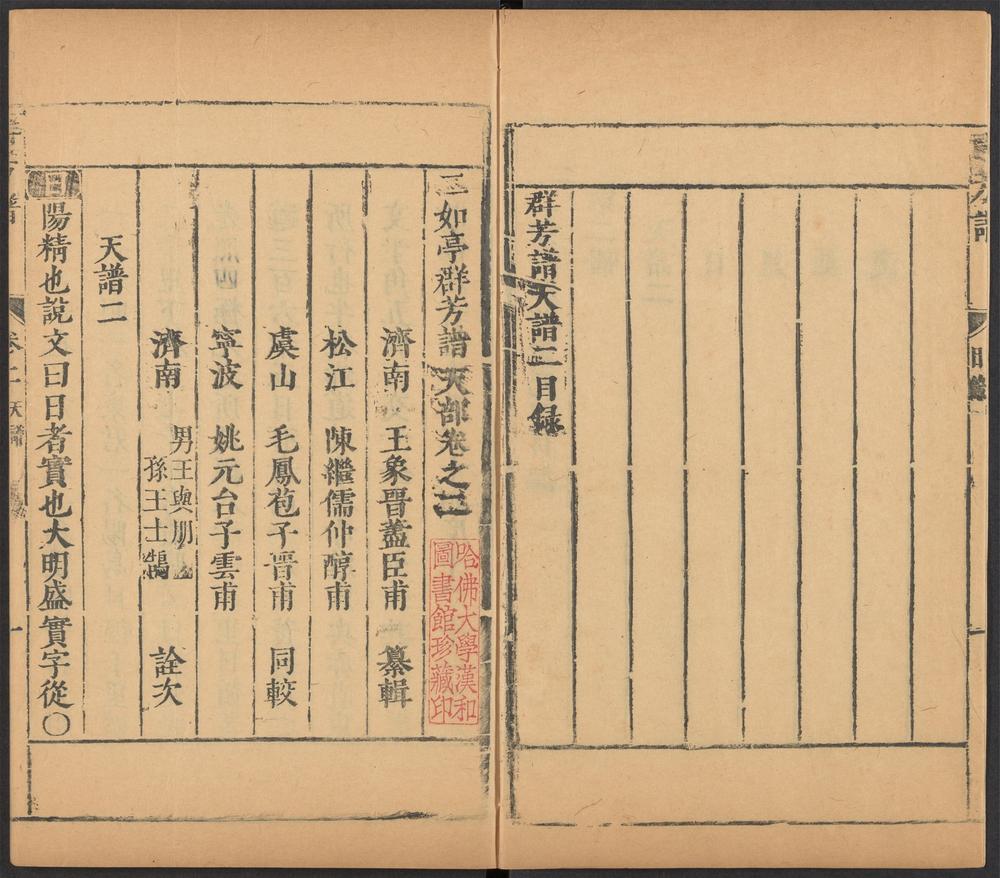 群芳譜天譜二目録
二如亭群芳譜天部卷之二
濟南 王象晉藎臣甫 纂輯
松江 陳繼儒仲醇甫
虞山 毛鳳苞子晉甫 同較
寧波 姚元台子雲甫
濟南 男王與朋 孫王士鵠 詮次
天譜二
日 陽精也說文曰日者實也大明盛實字從〇
卷二 天譜 一
哈佛大學漢和
圖書館珍藏印